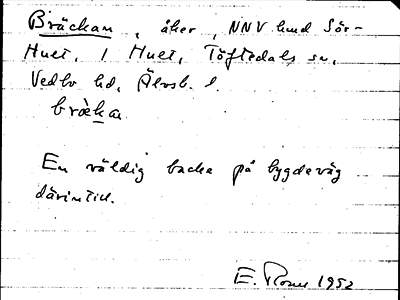 Bräckan, åker, NNV hmd Sör-
Huet, 1 Huet, Töftedals sn,
Vedbo hd, Älvsb. l.
bräkan
En väldig backe på bygdeväg
därintill.
E. 1952